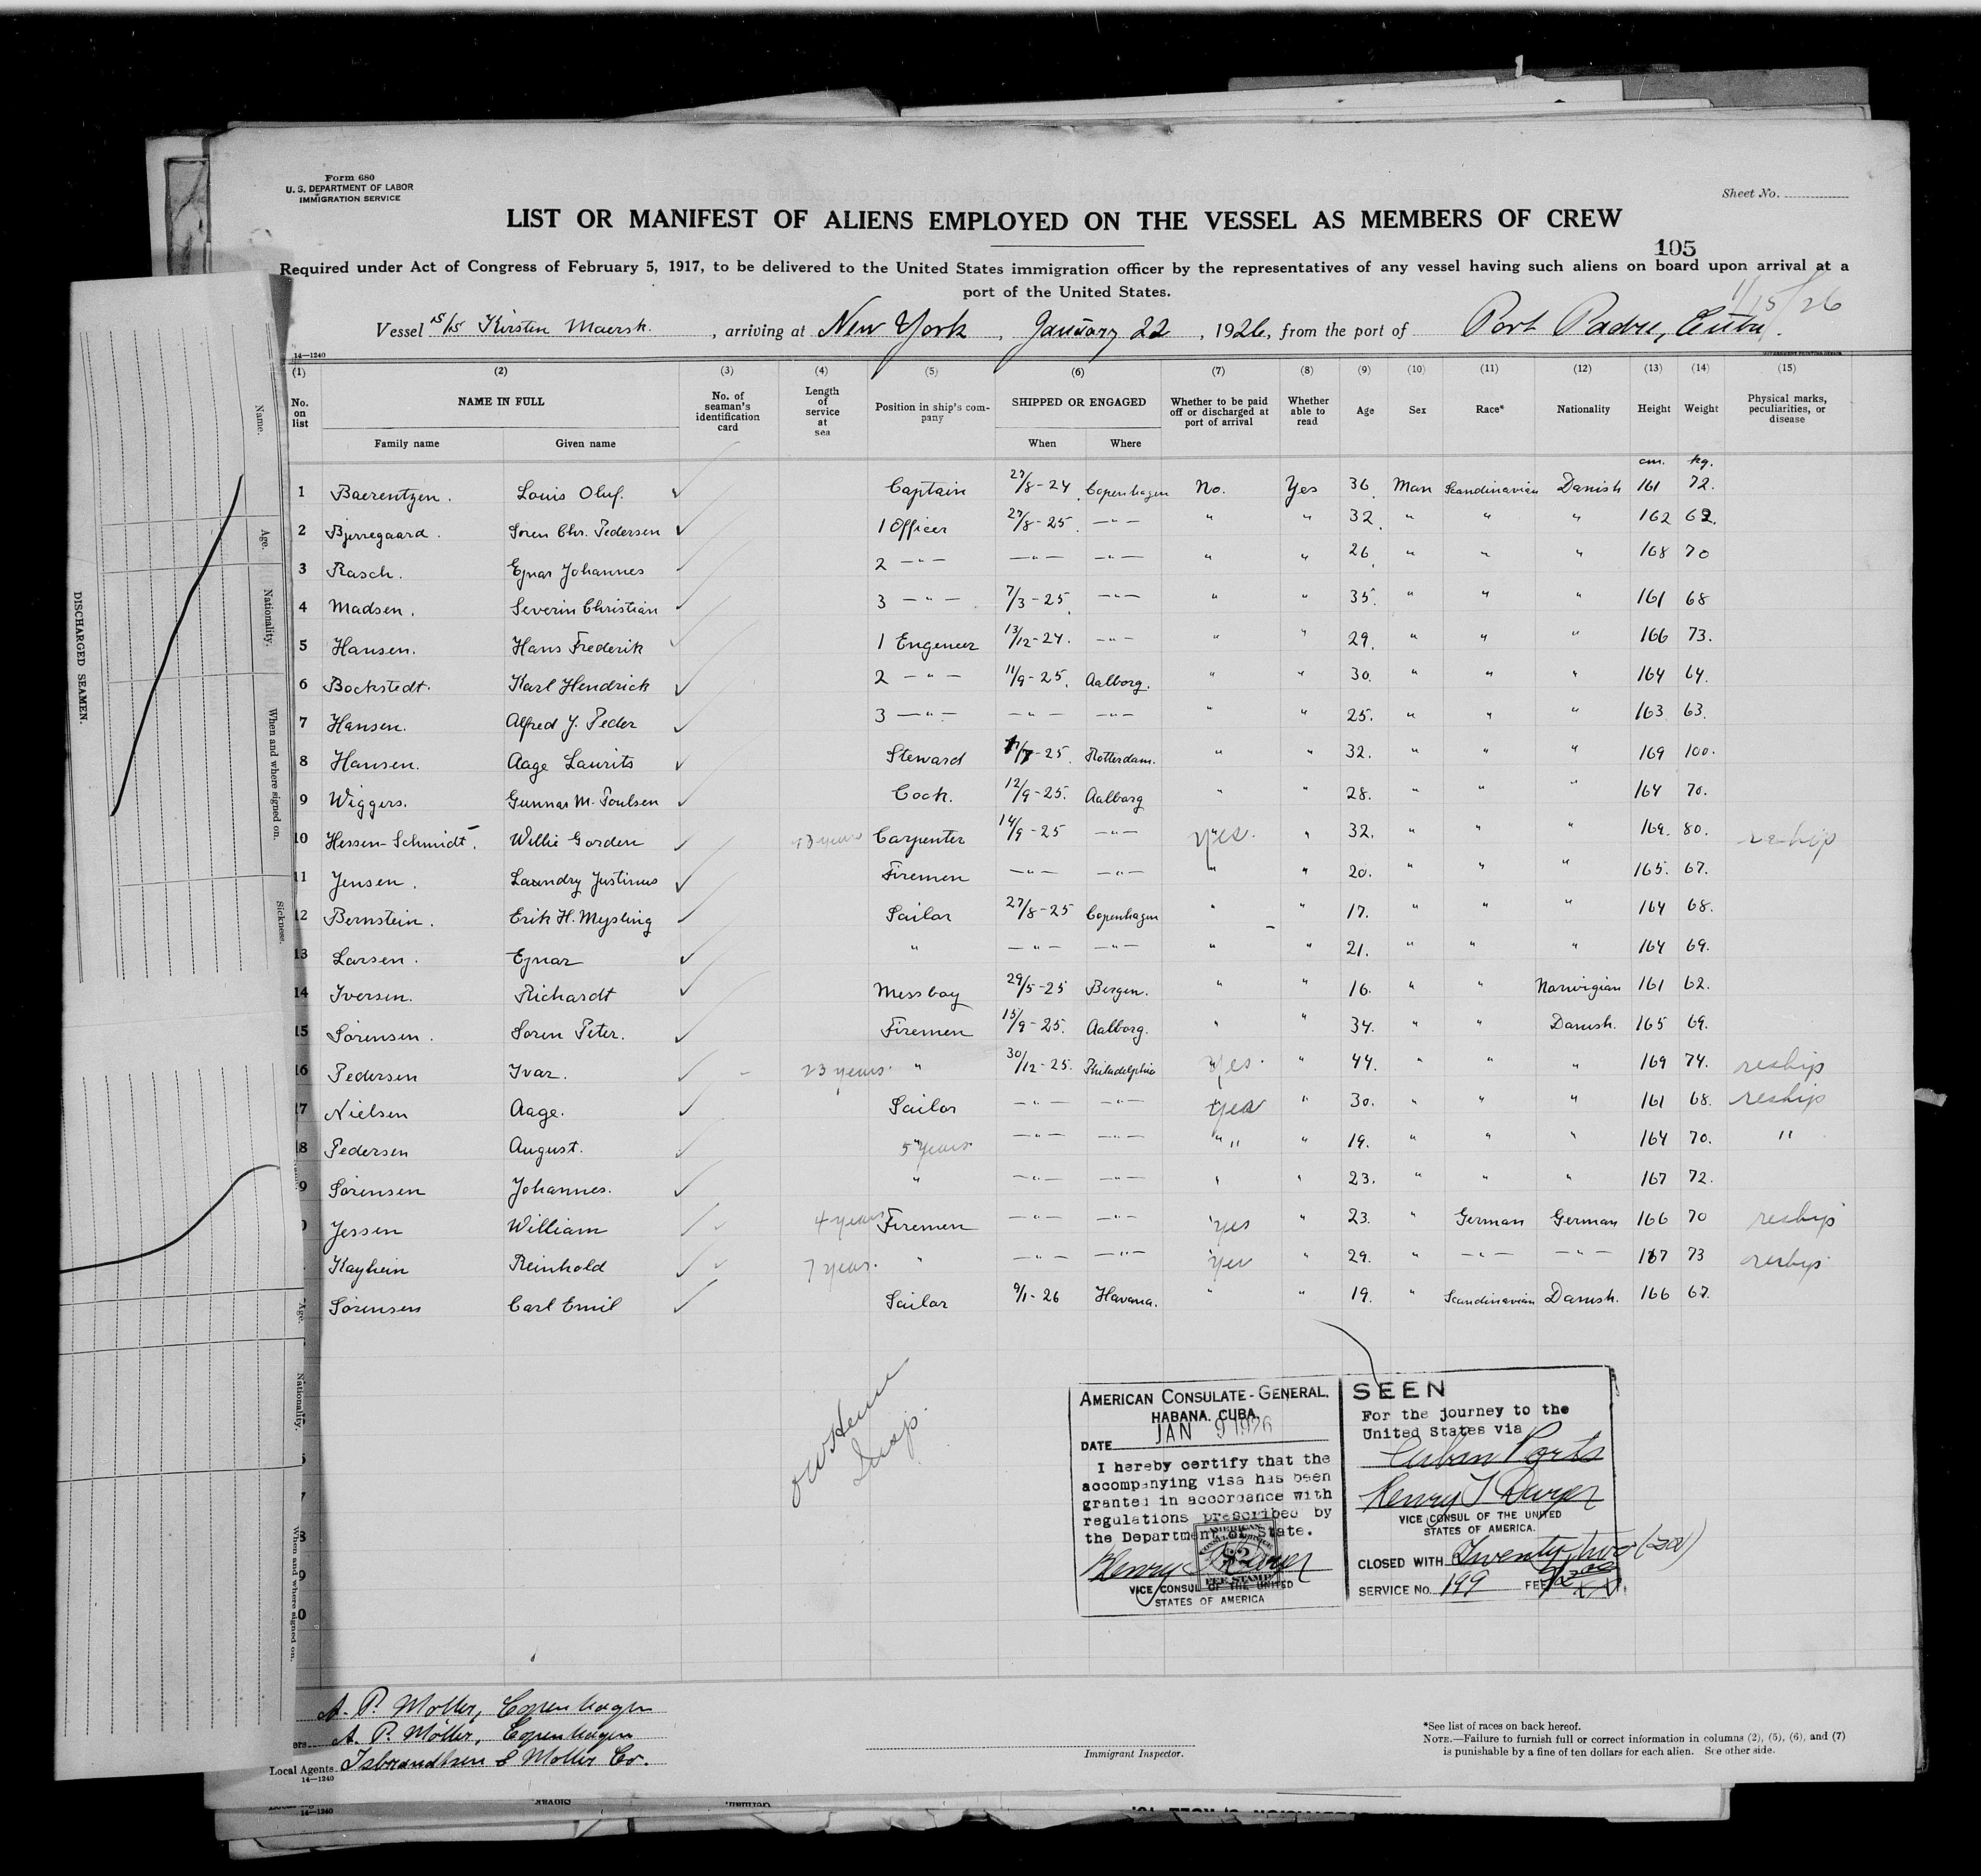 Form 680
U. S. DEPARTMENT OF LABOR
IMMIGRATION SERVICE
Sheet No.
LIST OR MANIFEST OF ALIENS EMPLOYED ON THE VESSEL AS MEMBERS OF CREW
105
Required under Act of Congress of February 5, 1917, to be delivered to the United States immigration officer by the representatives of any vessel having such aliens on board upon arrival at a
port of the United States.
1/15/26
Vessel S/S Kirsten Maersk, arriving at New York, January 22, 1926, from the port of Port Padre, Cuba.
14—1240
(1) (2) (3) (4) (5) (6) (7) (8) (9) (10) (11) (12) (13) (14) (15)
No. on list NAME IN FULL No. of seaman's identification card Length of service at sea Position in ship's company SHIPPED OR ENGAGED Whether to be paid off or discharged at port of arrival Whether able to read Age Sex Race* Nationality Height Weight Physical marks, peculiarities, or disease
Family name Given name When Where
cm. kg.
1 Baerentzen. Louis Oluf. Captain 27/8-24 Copenhagen No. Yes 36 Man Scandinavian Danish 161 72.
2 Bjerregaard. Soren Chr. Pedersen 1 Officer 27/8-25 —"— " " 32. " " " 162 62.
3 Rasch. Ejnar Johannes 2 —"— —"— —"— " " 26. " " " 168 70
4 Madsen. Severin Christian 3 —"— 7/3-25 —"— " " 35. " " " 161 68
5 Hansen. Hans Frederik 1 Engeneer 13/12-24. —"— " " 29. " " " 166 73.
6 Bockstedt. Karl Hendrick 2 —"— 11/9-25. Aalborg. " " 30. " " " 164 64.
7 Hansen. Alfred J. Peder 3 —"— —"— —"— " " 25. " " " 163 63.
8 Hansen. Aage Laurits Steward /7-25. Rotterdam. " " 32. " " " 169 100.
9 Wiggers. Gunnar M. Poulsen Cook. 12/9-25. Aalborg " " 28. " " " 164 70.
10 Hessen-Schmidt. Willie Gorden 13 years Carpenter 14/9-25 —"— yes. " 32. " " " 169. 80. reship
11 Jensen. Laundry Justinus Firemen —"— —"— " " 20. " " " 165. 67.
12 Bernstein. Erik H. Mysling Sailor 27/8-25 Copenhagen " " 17. " " " 164 68.
13 Larsen. Ejnar " —"— —"— " " 21. " " " 164 69.
14 Iversen. Richardt Messboy 29/5-25 Bergen. " " 16. " " Norwigian 161 62.
15 Sörensen. Soren Peter. Firemen 15/9-25. Aalborg. " " 34. " " Danish. 165 69.
16 Pedersen Ivar. 23 years. " 30/12-25. Philadelphia yes. " 44. " " " 169 74. reship
17 Nielsen Aage. Sailor —"— —"— yes " 30. " " " 161 68. reship
18 Pedersen August. 5 years " —"— —"— " " 19. " " " 164 70. "
9 Sörensen Johannes. " —"— —"— " " 23. " " " 167 72.
0 Jessen William 4 years Firemen —"— —"— yes " 23. " German German 166 70 reship
Kayhein Reinhold 7 years. " —"— —"— yes " 29. " —"— —"— 167 73 reship
Sörensen Carl Emil Sailor 9/1-26 Havana. " " 19. " Scandinavian Danish. 166 67.
AMERICAN CONSULATE-GENERAL,
HABANA, CUBA.
DATE JAN 9 1926
I hereby certify that the
accompanying visa has been
granted in accordance with
regulations prescribed by
the Department of State.
VICE CONSUL OF THE UNITED
STATES OF AMERICA
AMERICAN
FEE STAMP
SEEN
For the journey to the
United States via
Cuban Ports
VICE CONSUL OF THE UNITED
STATES OF AMERICA.
CLOSED WITH Twenty two (22)
SERVICE No. 199 FEE
A. P. Moller, Copenhagen
ers A. P. Möller, Copenhagen
Local Agents Isbrandtsen & Moller Co.
14—1240
Immigrant Inspector.
*See list of races on back hereof.
NOTE.—Failure to furnish full or correct information in columns (2), (5), (6), and (7)
is punishable by a fine of ten dollars for each alien. See other side.
DISCHARGED SEAMEN.
Name.
Age.
Nationality.
When and where signed on.
Sickness.
Age.
Nationality.
When and where signed on.
14—1240